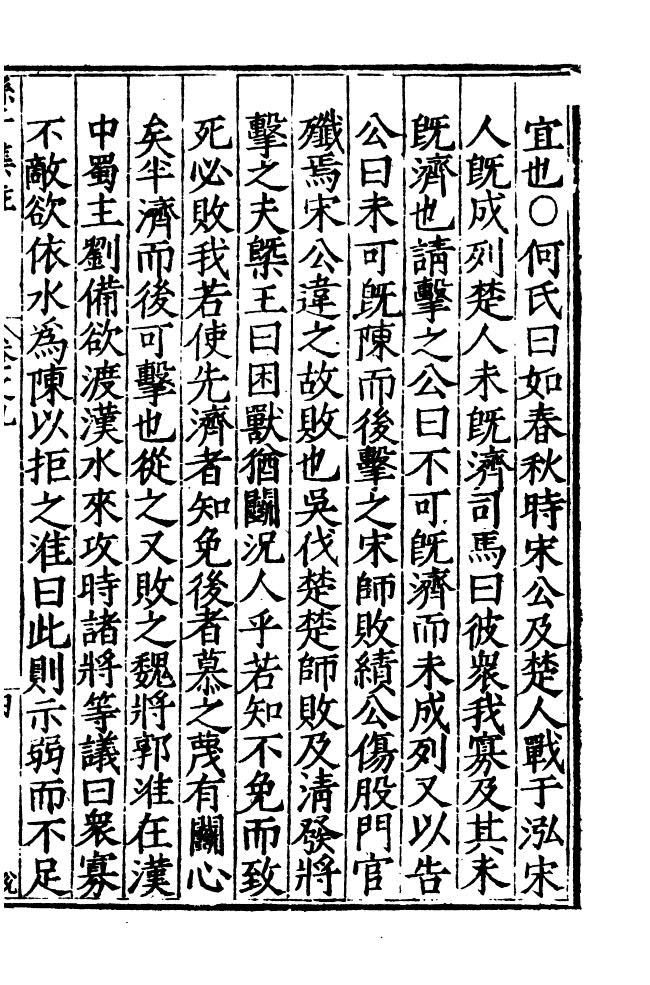 宜也○何氏曰如春秋時宋公及楚人戰于泓宋
人旣成列楚人未旣濟司馬曰彼衆我寡及其未
旣濟也請擊之公曰不可旣濟而未成列又以告
公曰未可旣陳而後擊之宋師敗績公傷股門官
殲焉宋公違之故敗也吳伐楚楚師敗及淸發將
擊之夫槩王曰困獸猶鬭況人乎若知不免而致
死必敗我若使先濟者知免後者慕之蔑有鬭心
矣半濟而後可擊也從之又敗之魏將郭淮在漢
中蜀主劉備欲渡漢水來攻時諸將等議曰衆寡
不敵欲依水爲陳以拒之淮曰此則示弱而不足